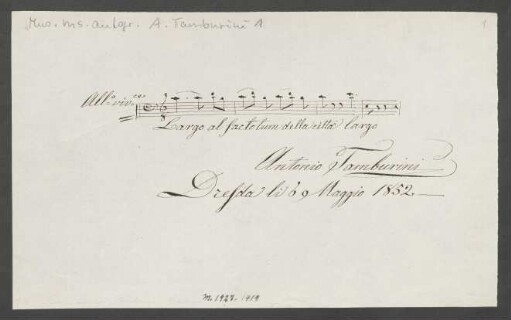 Mus. ms. autogr. A. Tamburini 1.
1
All.º viv.ce
Largo al factotum della città largo
Antonio Tamburini
Dresda li 9 Maggio 1852.
M. 1927. 1919